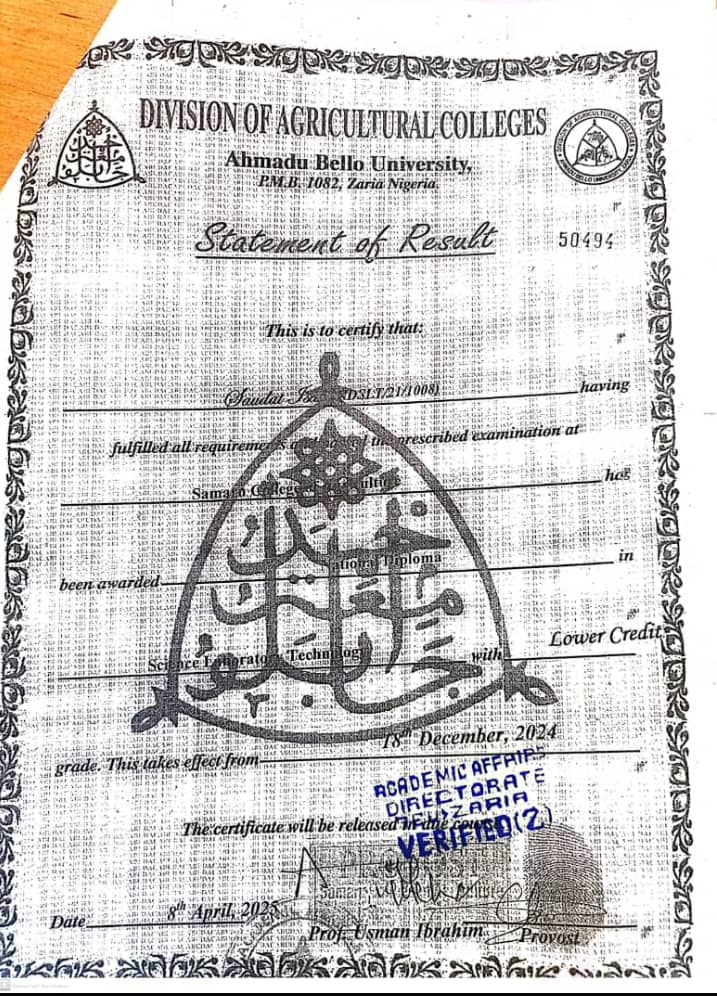 DIVISION OF AGRICULTURAL COLLEGES
Ahmadu Bello University,
P.M.B. 1082, Zaria Nigeria.
Statement of Result
50494
This is to certify that:
Saudat (DSLT/21/1008) having
fulfilled all requirements prescribed examination at
Samaru College has
been awarded National Diploma in
Science Laboratory Technology with Lower Credit
grade. This takes effect from 18th December, 2024
ACADEMIC AFFAIRS
DIRECTORATE
ZARIA
VERIFIED (2)
The certificate will be released in due
PROVOST
Samaru
Date 8th April, 2025
Prof. Usman Ibrahim
Provost